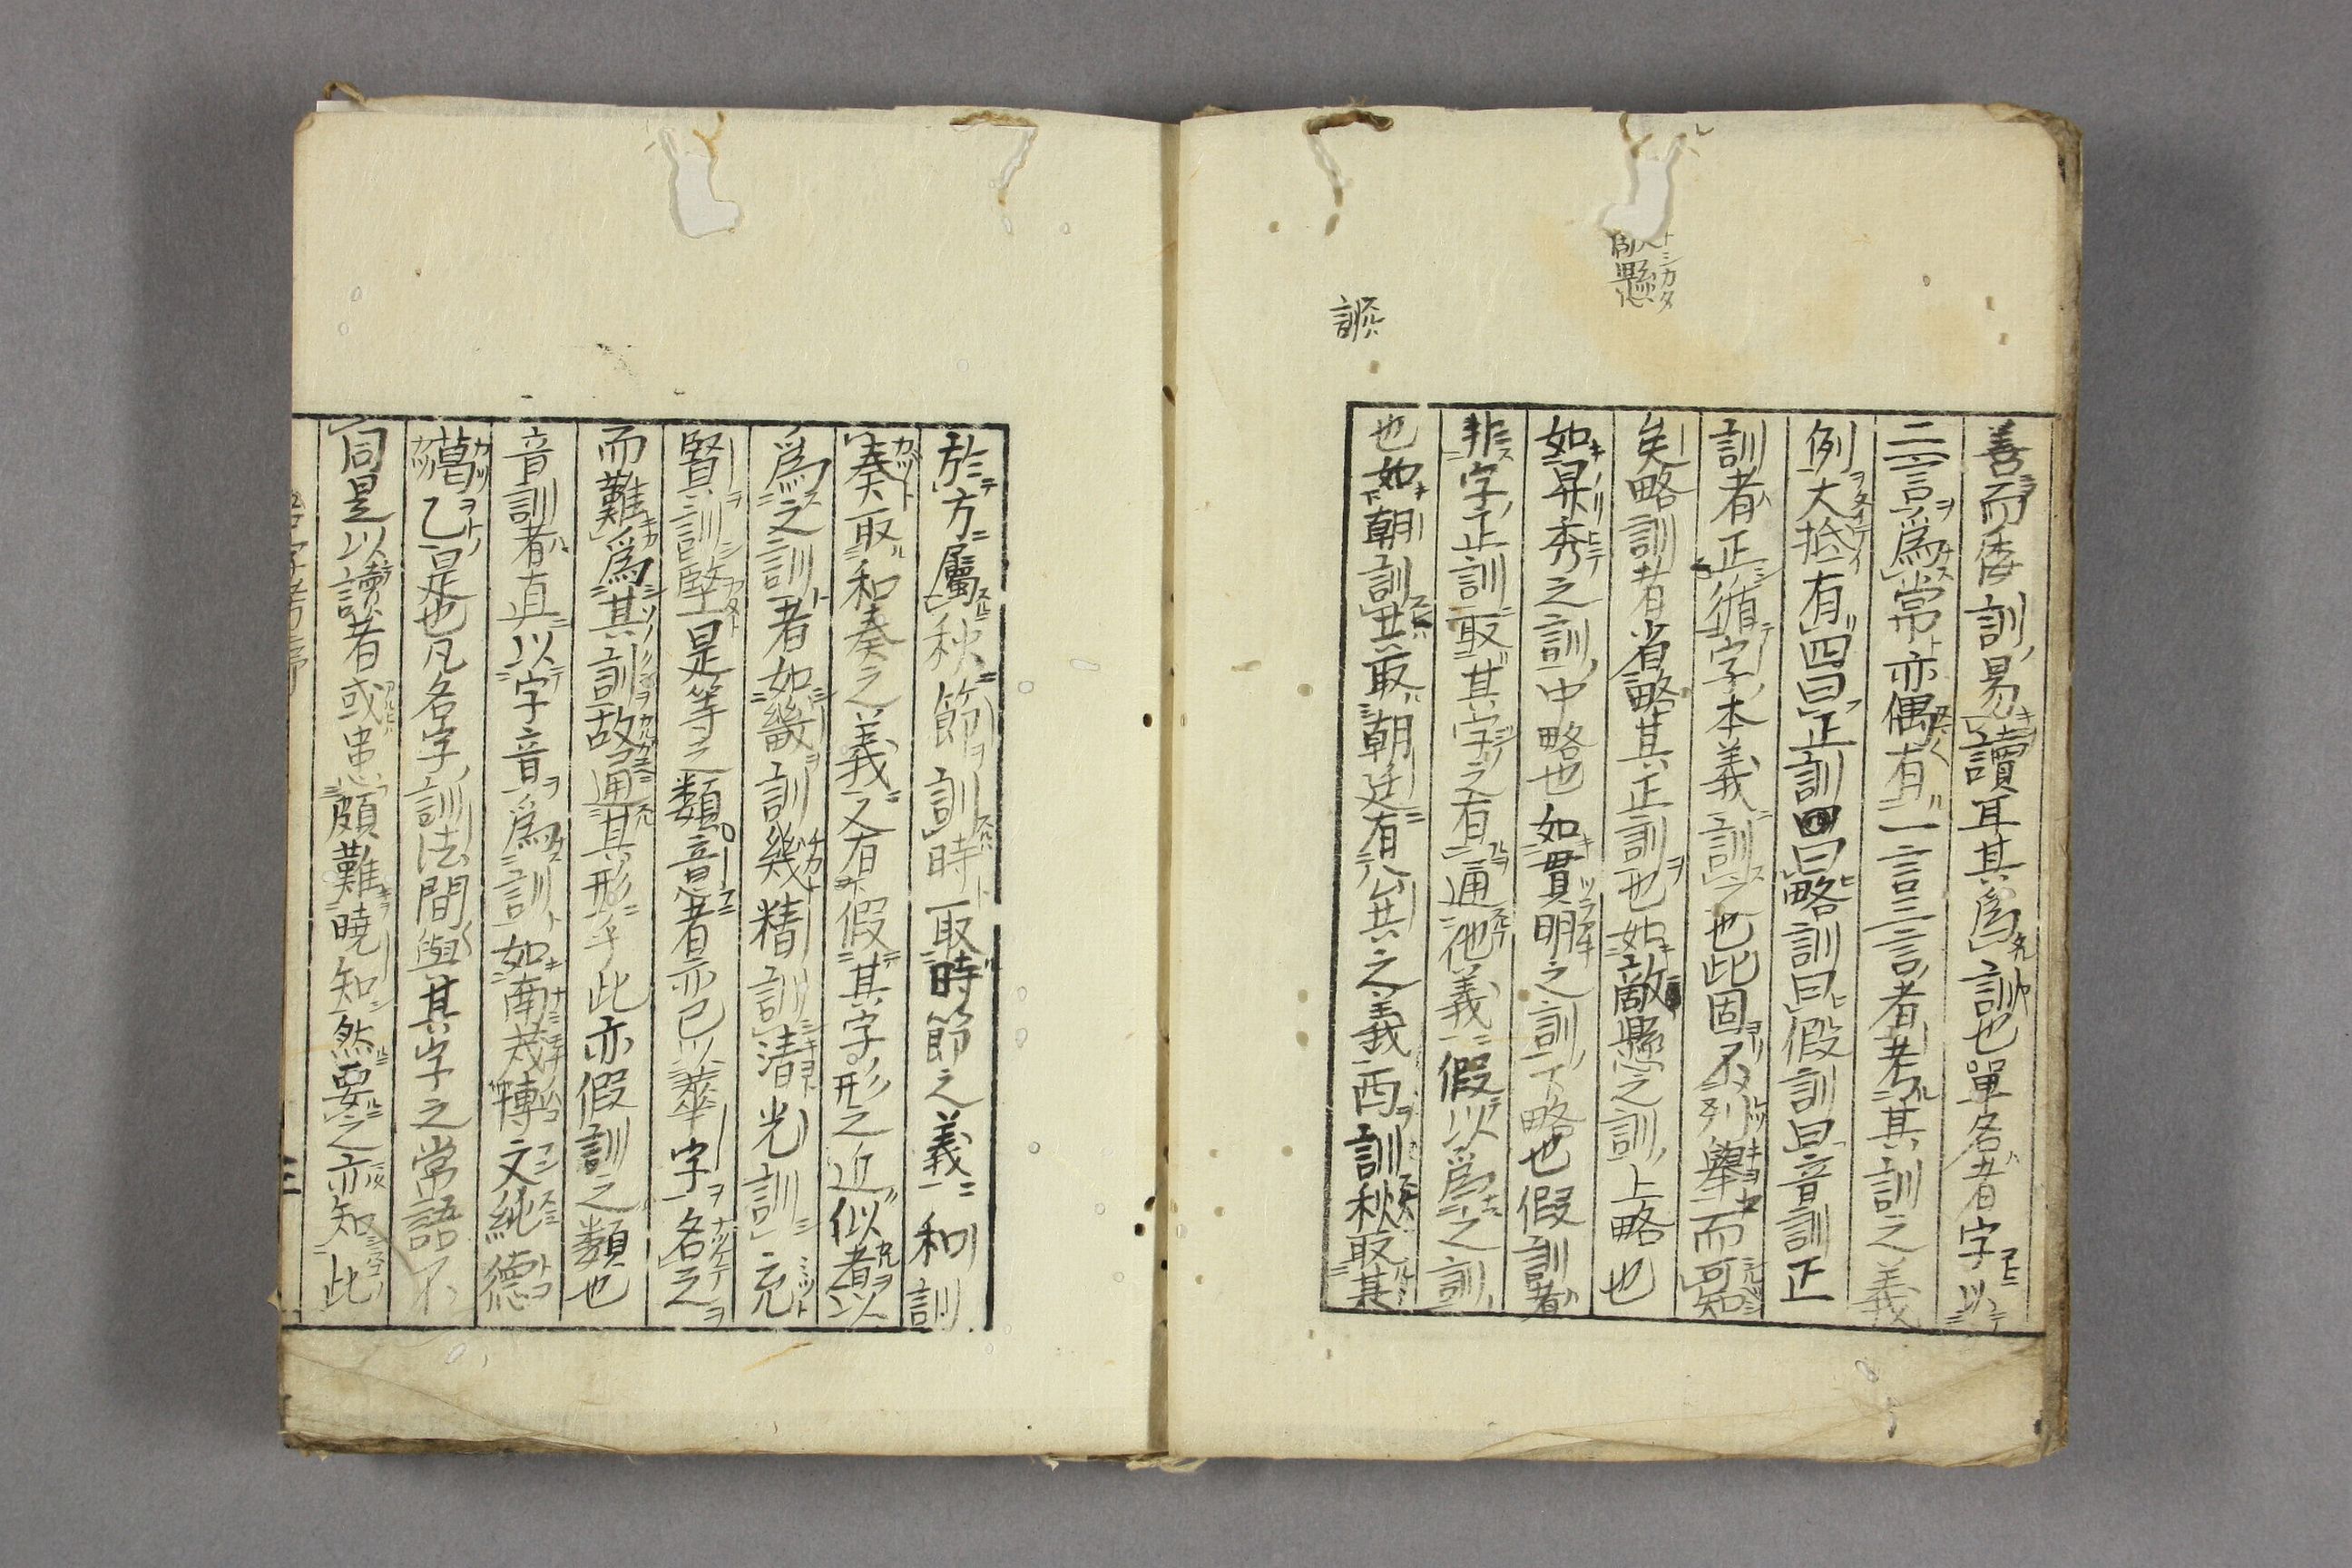 善而倭訓易讀耳其爲訓也單名者字以
二言爲常亦偶有一言三言者考其訓之義
例大抵有四曰正訓曰略訓曰假訓曰音訓正
訓者正循字本義訓之也此固不列舉而可知
矣略訓者省略其正訓也如敵懸之訓上略也
如昇秀之訓中略也如貫明之訓下略也假訓者
非字正訓取其字之有通他義假以爲之訓
也如朝訓丑取朝廷有公共之義酉訓秋取其
於方屬秋節訓時取時節之義和訓
奏取和奏之義又有假其字形之近似者以
爲之訓者如畿訓幾精訓清光訓充
賢訓堅是等之類意者亦已以華字名之
而難爲其訓故通其形乎此亦假訓之類也
音訓者直以字音爲訓如南茂轉文純德
葛乙是也凡名字訓法間與其字之常語不
同是以讀者或患頗難曉知然要之亦知此
三